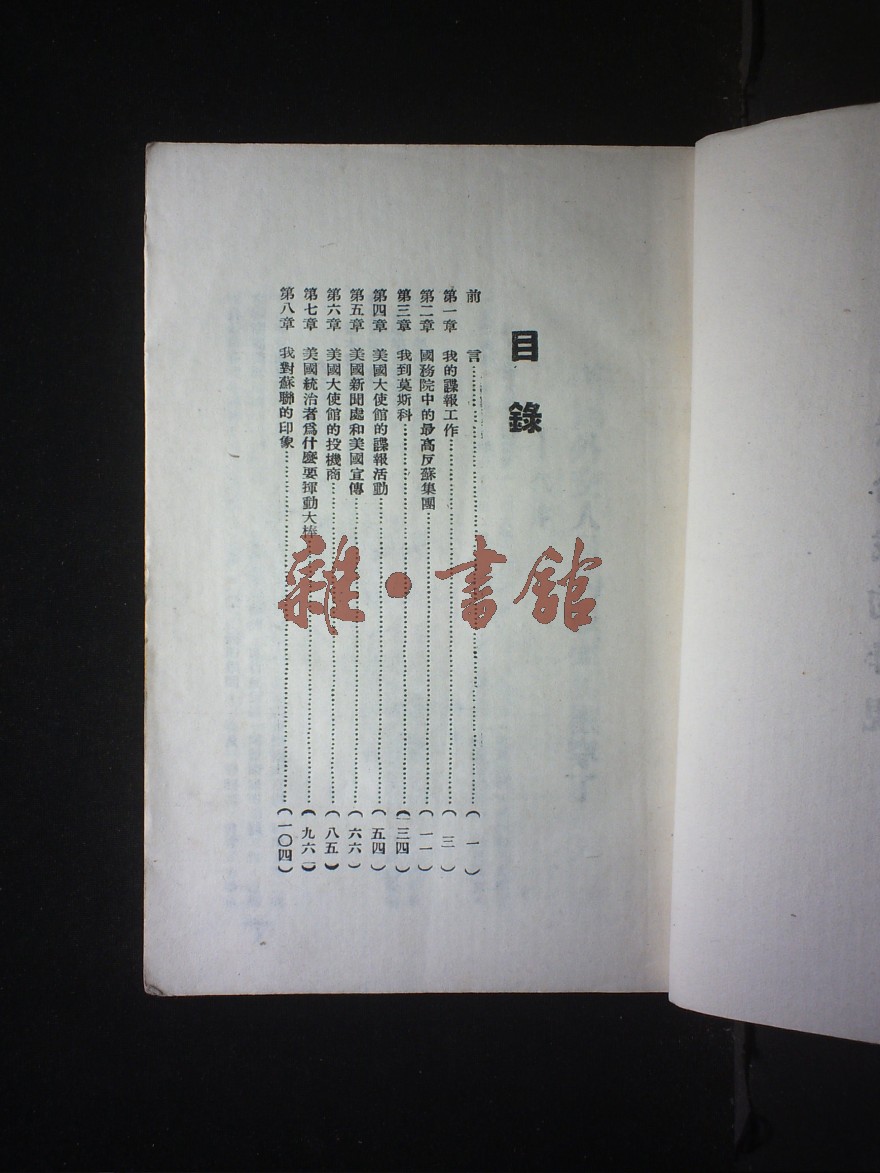 目錄
前言……(一)
第一章 我的諜報工作……(三)
第二章 國務院中的最高反蘇集團……(一一)
第三章 我到莫斯科……(三四)
第四章 美國大使館的諜報活動……(五四)
第五章 美國新聞處和美國宣傳……(六六)
第六章 美國大使館的投機商……(八五)
第七章 美國統治者爲什麼要揮動大棒……(九六)
第八章 我對蘇聯的印象……(一〇四)
雜·書館